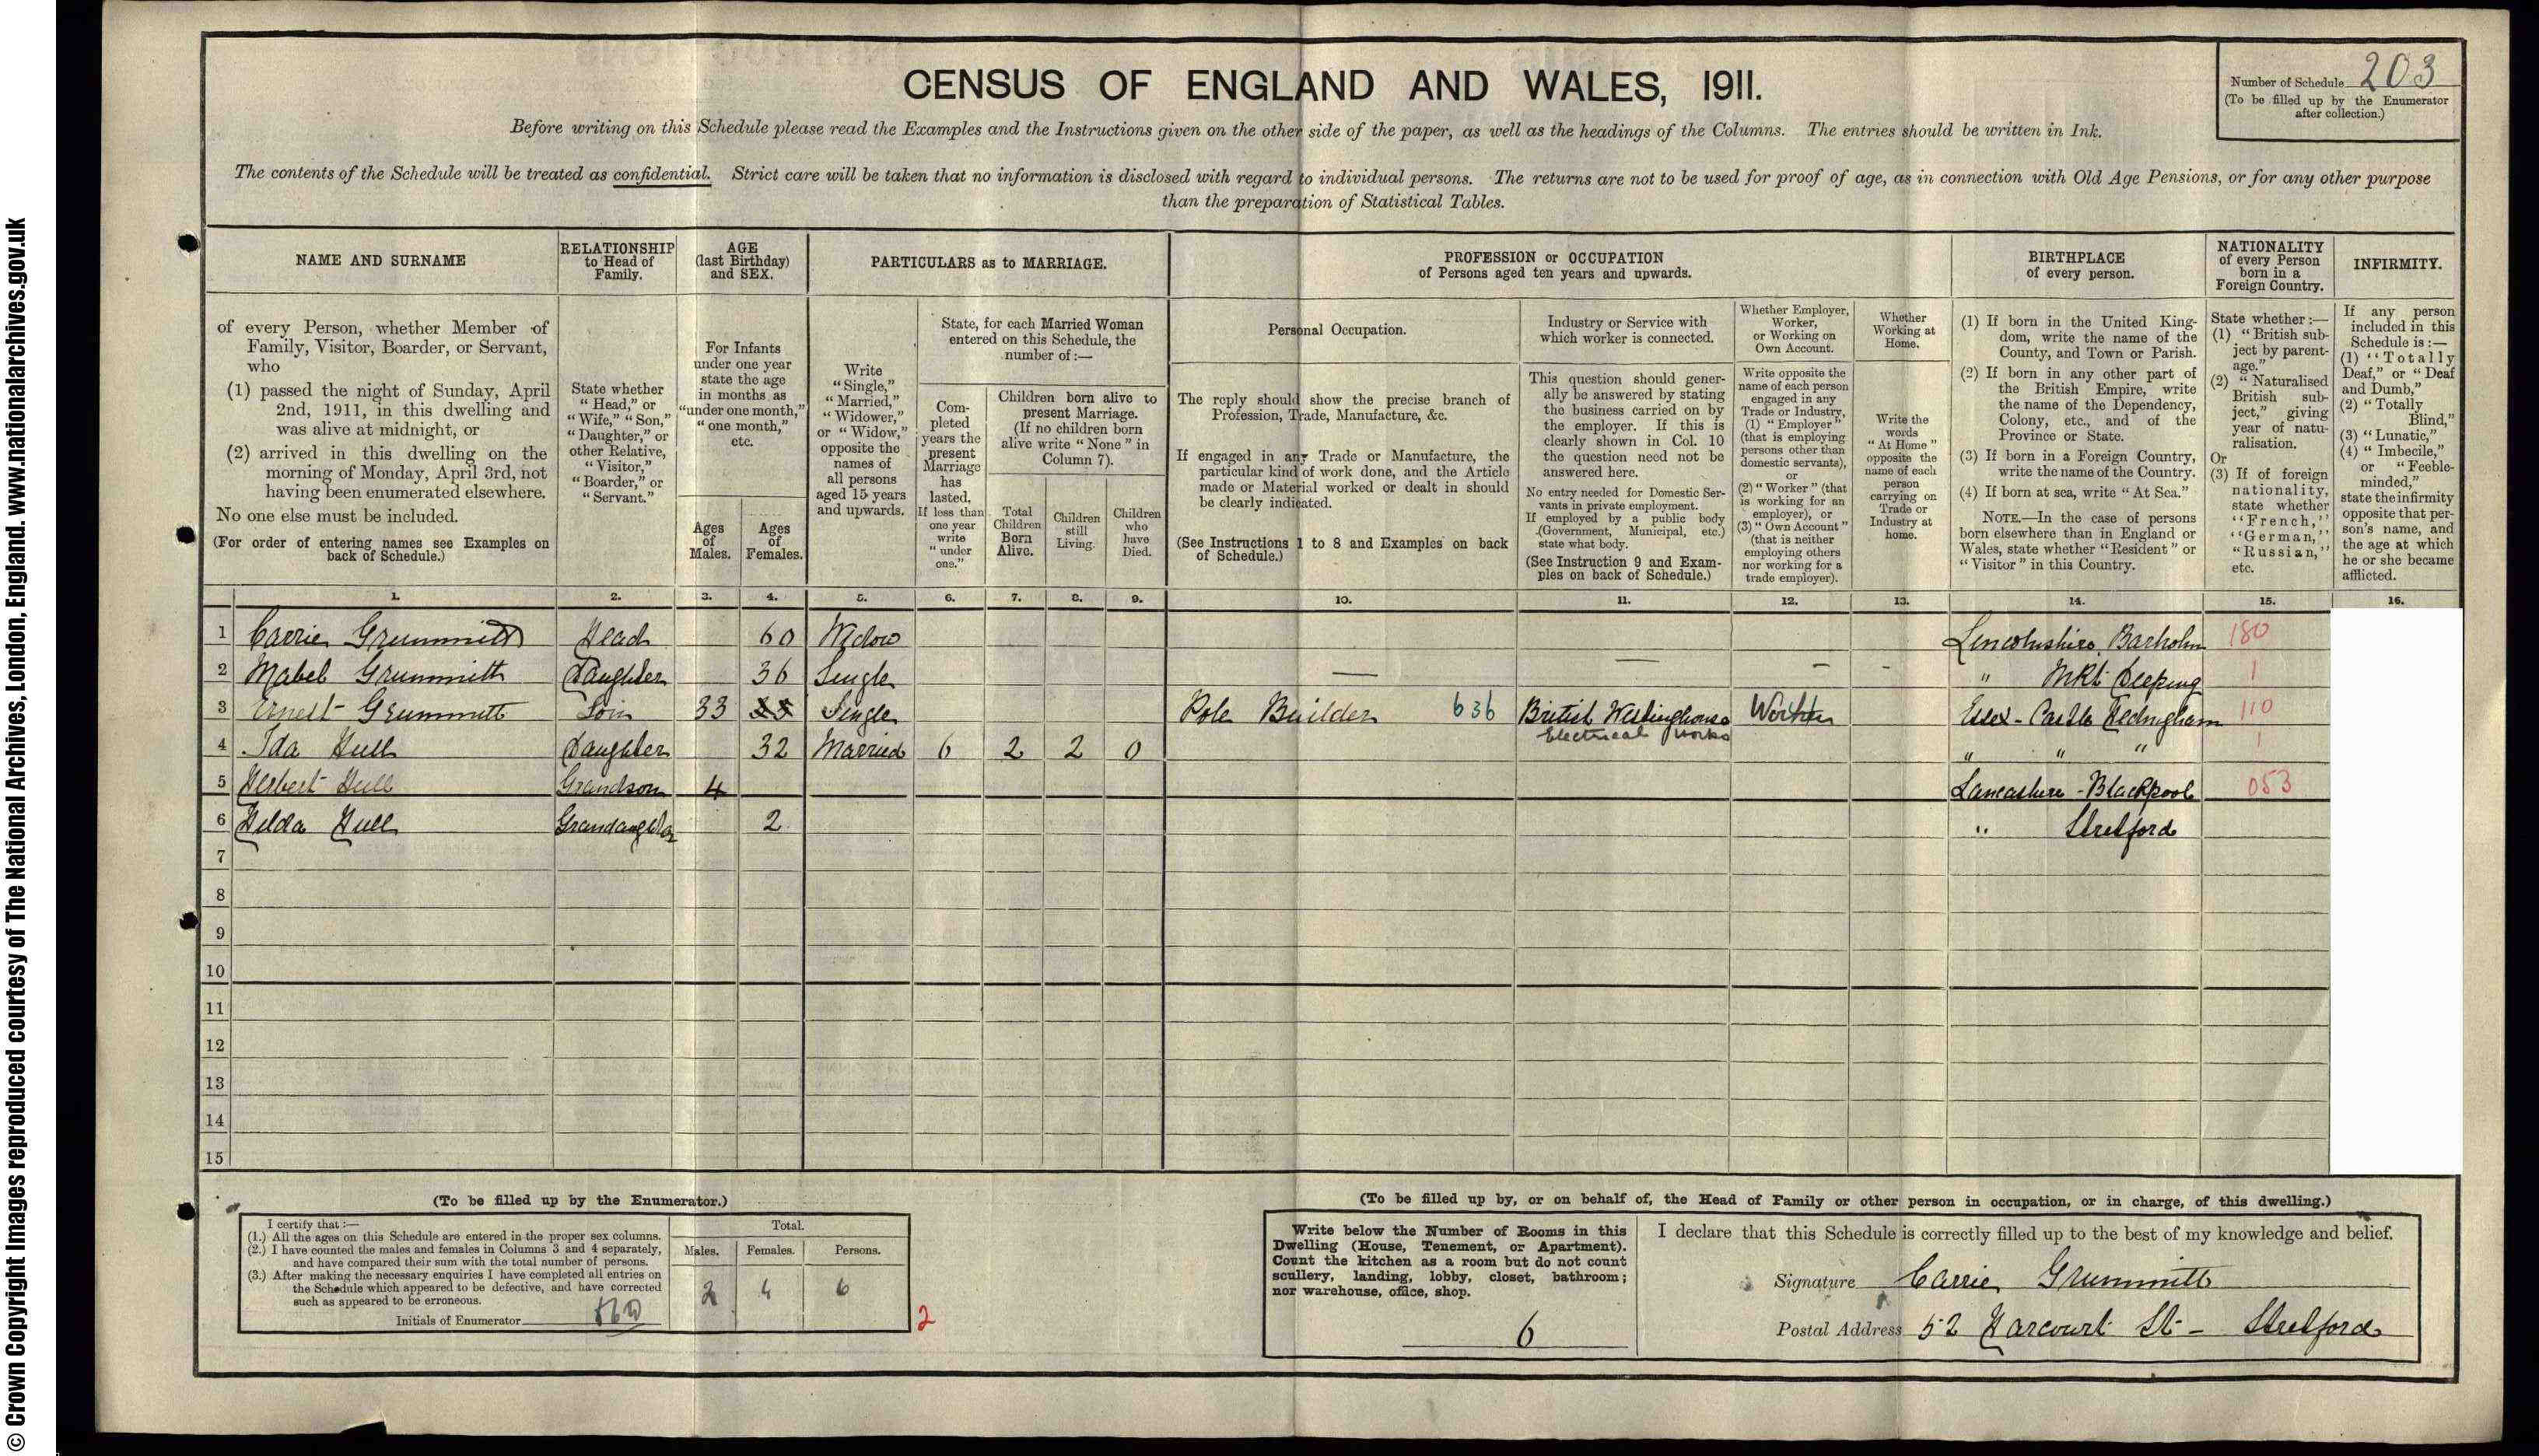 © Crown Copyright Images reproduced courtesy of The National Archives, London, England. www.nationalarchives.gov.uk
CENSUS OF ENGLAND AND WALES, 1911.
Number of Schedule 203
(To be filled up by the Enumerator
after collection.)
Before writing on this Schedule please read the Examples and the Instructions given on the other side of the paper, as well as the headings of the Columns. The entries should be written in Ink.
The contents of the Schedule will be treated as confidential. Strict care will be taken that no information is disclosed with regard to individual persons. The returns are not to be used for proof of age, as in connection with Old Age Pensions, or for any other purpose
than the preparation of Statistical Tables.
NAME AND SURNAME
of every Person, whether Member of
Family, Visitor, Boarder, or Servant,
who
(1) passed the night of Sunday, April
2nd, 1911, in this dwelling and
was alive at midnight, or
(2) arrived in this dwelling on the
morning of Monday, April 3rd, not
having been enumerated elsewhere.
No one else must be included.
(For order of entering names see Examples on
back of Schedule.)
RELATIONSHIP
to Head of
Family.
State whether
"Head," or
"Wife," "Son,"
"Daughter," or
other Relative,
"Visitor,"
"Boarder," or
"Servant."
AGE
(last Birthday)
and SEX.
For Infants
under one year
state the age
in months as
"under one month,"
"one month,"
etc.
Ages
of
Males.
Ages
of
Females.
PARTICULARS as to MARRIAGE.
Write
"Single,"
"Married,"
"Widower,"
or "Widow,"
opposite the
names of
all persons
aged 15 years
and upwards.
State, for each Married Woman
entered on this Schedule, the
number of :—
Com-
pleted
years the
present
Marriage
has
lasted.
If less than
one year
write
"under
one."
Children born alive to
present Marriage.
(If no children born
alive write "None" in
Column 7).
Total
Children
Born
Alive.
Children
still
Living.
Children
who
have
Died.
PROFESSION or OCCUPATION
of Persons aged ten years and upwards.
Personal Occupation.
The reply should show the precise branch of
Profession, Trade, Manufacture, &c.
If engaged in any Trade or Manufacture, the
particular kind of work done, and the Article
made or Material worked or dealt in should
be clearly indicated.
(See Instructions 1 to 8 and Examples on back
of Schedule.)
Industry or Service with
which worker is connected.
This question should gener-
ally be answered by stating
the business carried on by
the employer. If this is
clearly shown in Col. 10
the question need not be
answered here.
No entry needed for Domestic Ser-
vants in private employment.
If employed by a public body
(Government, Municipal, etc.)
state what body.
(See Instruction 9 and Exam-
ples on back of Schedule.)
Whether Employer,
Worker,
or Working on
Own Account.
Write opposite the
name of each person
engaged in any
Trade or Industry,
(1) "Employer"
(that is employing
persons other than
domestic servants),
or
(2) "Worker" (that
is working for an
employer), or
(3) "Own Account"
(that is neither
employing others
nor working for a
trade employer).
Whether
Working at
Home.
Write the
words
"At Home"
opposite the
name of each
person
carrying on
Trade or
Industry at
home.
BIRTHPLACE
of every person.
(1) If born in the United King-
dom, write the name of the
County, and Town or Parish.
(2) If born in any other part of
the British Empire, write
the name of the Dependency,
Colony, etc., and of the
Province or State.
(3) If born in a Foreign Country,
write the name of the Country.
(4) If born at sea, write "At Sea."
NOTE.—In the case of persons
born elsewhere than in England or
Wales, state whether "Resident" or
"Visitor" in this Country.
NATIONALITY
of every Person
born in a
Foreign Country.
State whether :—
(1) "British sub-
ject by parent-
age."
(2) "Naturalised
British sub-
ject," giving
year of natu-
ralisation.
Or
(3) If of foreign
nationality,
state whether
"French,"
"German,"
"Russian,"
etc.
INFIRMITY.
If any person
included in this
Schedule is :—
(1) "Totally
Deaf," or "Deaf
and Dumb,"
(2) "Totally
Blind,"
(3) "Lunatic,"
(4) "Imbecile,"
or "Feeble-
minded,"
state the infirmity
opposite that per-
son's name, and
the age at which
he or she became
afflicted.
1. 2. 3. 4. 5. 6. 7. 8. 9. 10. 11. 12. 13. 14. 15. 16.
1 Carrie Grummitt Head 60 Widow Lincolnshire Barholm 180
2 Mabel Grummitt Daughter 36 Single — — — - " Mkt Deeping 1
3 Ernest Grummitt Son 33 Single Pole Builder 636 British Westinghouse Worker Essex - Castle Hedingham 110
Electrical Works
4 Ida Hull Daughter 32 Married 6 2 2 0 " " " 1
5 Herbert Hull Grandson 4 Lancashire - Blackpool 053
6 Hilda Hull Grandaughter 2 " Stretford
7
8
9
10
11
12
13
14
15
(To be filled up by the Enumerator.)
I certify that :—
(1.) All the ages on this Schedule are entered in the proper sex columns.
(2.) I have counted the males and females in Columns 3 and 4 separately,
and have compared their sum with the total number of persons.
(3.) After making the necessary enquiries I have completed all entries on
the Schedule which appeared to be defective, and have corrected
such as appeared to be erroneous.
Initials of Enumerator
Total.
Males. Females. Persons.
2 4 6
2
(To be filled up by, or on behalf of, the Head of Family or other person in occupation, or in charge, of this dwelling.)
Write below the Number of Rooms in this
Dwelling (House, Tenement, or Apartment).
Count the kitchen as a room but do not count
scullery, landing, lobby, closet, bathroom;
nor warehouse, office, shop.
6
I declare that this Schedule is correctly filled up to the best of my knowledge and belief.
Signature Carrie Grummitt
Postal Address 52 Harcourt St - Stretford